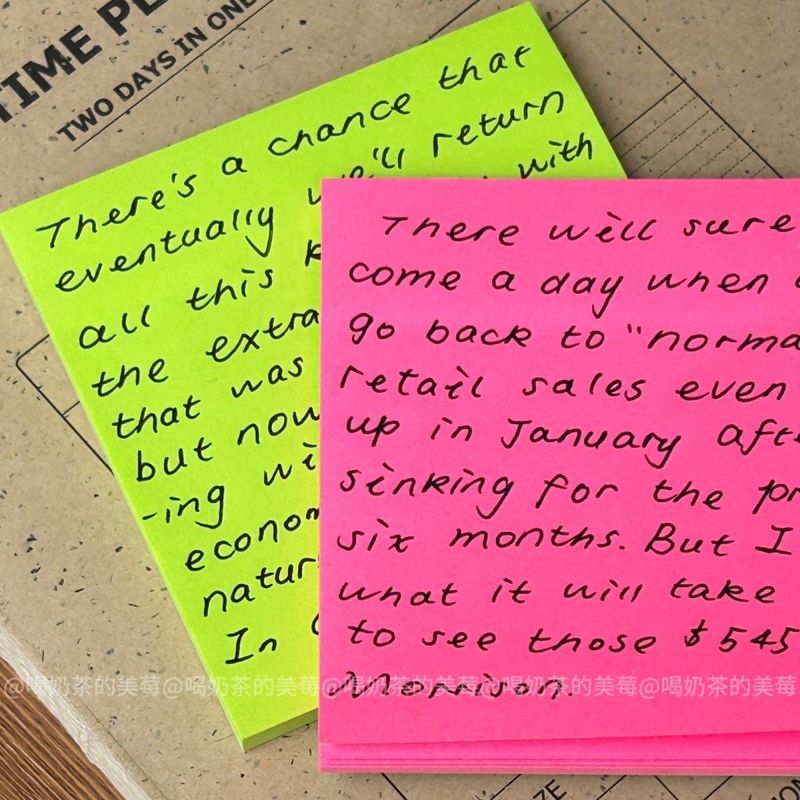 TIME
TWO DAYS IN ONE
There's a chance that
eventually we'll return
with
all this
the extra
that was
but now
-ing
econom
natur
In
There will sure
come a day when
go back to "norma
retail sales even
up in January afte
sinking for the pr
six months. But I
what it will take
to see those $545
Morrison.
@喝奶茶的美莓@喝奶茶的美莓@喝奶茶的美莓@喝奶茶的美莓@喝奶茶的美莓